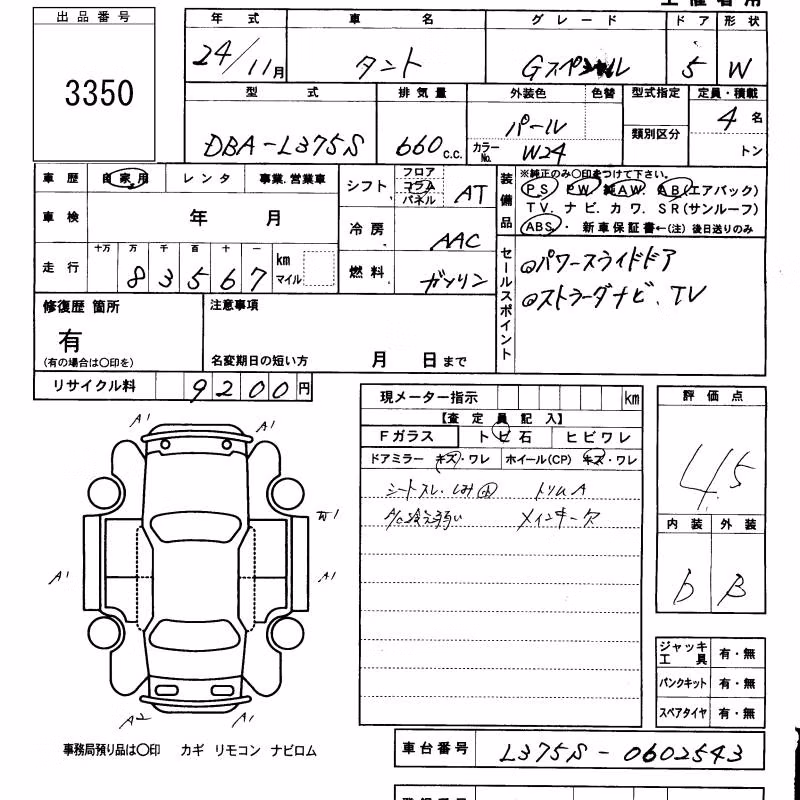 出品番号
3350
年式 車名 グレード ドア 形状
24/11月 タント Gスペシャル 5 W
型式 排気量 外装色 色替 型式指定 定員・積載
DBA-L375S 660c.c. パール カラーNo. W24 類別区分 4名 トン
車歴 自家用 レンタ 事業.営業車
シフト フロア コラム パネル AT
装備品 ※純正のみ〇印をつけて下さい。
PS PW 純AW AB(エアバック)
TV. ナビ. カワ. SR(サンルーフ)
ABS・ 新車保証書←(注)後日送りのみ
車検 年 月
冷房 AAC
走行 十万 万 千 百 十 一
83567 km マイル
燃料 ガソリン
セールスポイント
◎パワースライドドア
◎ストラーダナビ、TV
修復歴 箇所
有
(有の場合は〇印を)
注意事項
名変期日の短い方 月 日まで
リサイクル料 9200円
現メーター指示 km
【査定員記入】
Fガラス トビ石 ヒビワレ
ドアミラー キズ・ワレ ホイール(CP) キズ・ワレ
シートスレ・しみ トリムA
A/C冷え弱い メインキー欠
評価点
4.5
内装 外装
D B
A1 A1
W1
A1 A1
A2 A1
ジャッキ工具 有・無
パンクキット 有・無
スペアタイヤ 有・無
事務局預り品は〇印 カギ リモコン ナビロム
車台番号 L375S-0602543